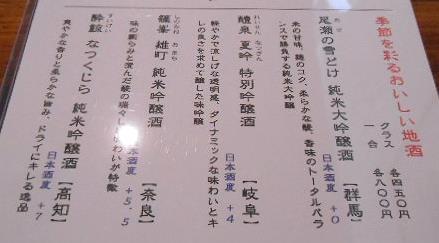 季節を彩るおいしい地酒
グラス 各四五〇円
一合 各八〇〇円
おぜ
尾瀬の雪どけ 純米大吟醸酒【群馬】
日本酒度 +0
米の甘味、麹のコク、柔らかな酸、香味のトータルバラ
ンスで勝負する純米大吟醸
れいせん なつぎん
醴泉 夏吟 特別吟醸酒【岐阜】
日本酒度 +4
軽やかで涼しげな透明感、ダイナミックな味わいとキ
レの良さを求めて醸した味吟醸
しのみね おまち
篠峯 雄町 純米吟醸酒【奈良】
日本酒度 +5.5
味の膨らみと澄んだ酸の瑞々し わいが特徴
すいげい
酔鯨 なつくじら 純米吟醸酒【高知】
日本酒度 +7
爽やかな香りと柔らかな旨み、ドライにキレる逸品